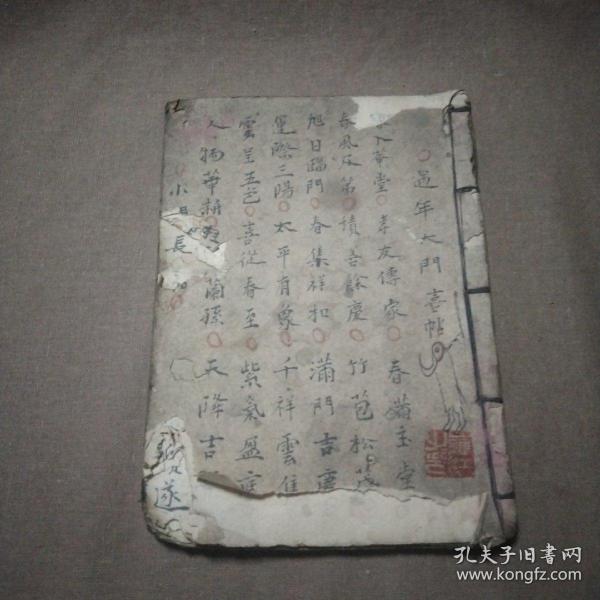 過年大門喜帖
入華堂○孝友傳家○春滿玉堂
春風及第○積善餘慶○竹苞松茂
旭日臨門○春集祥和○滿門吉慶
運際三陽○太平有象○千祥雲集
雲呈五色○喜從春至○紫氣盈庭
人 物華 蘭孫○天降吉
小 長
遂
孔夫子旧书网
www.kongfz.com